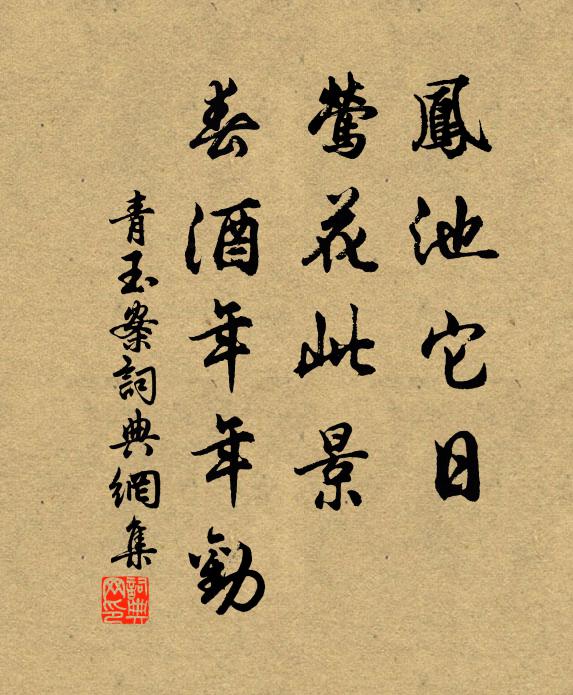 鳳池它日
鶯花此景
春酒年年勸
青玉案詞典網集
詞典
网印